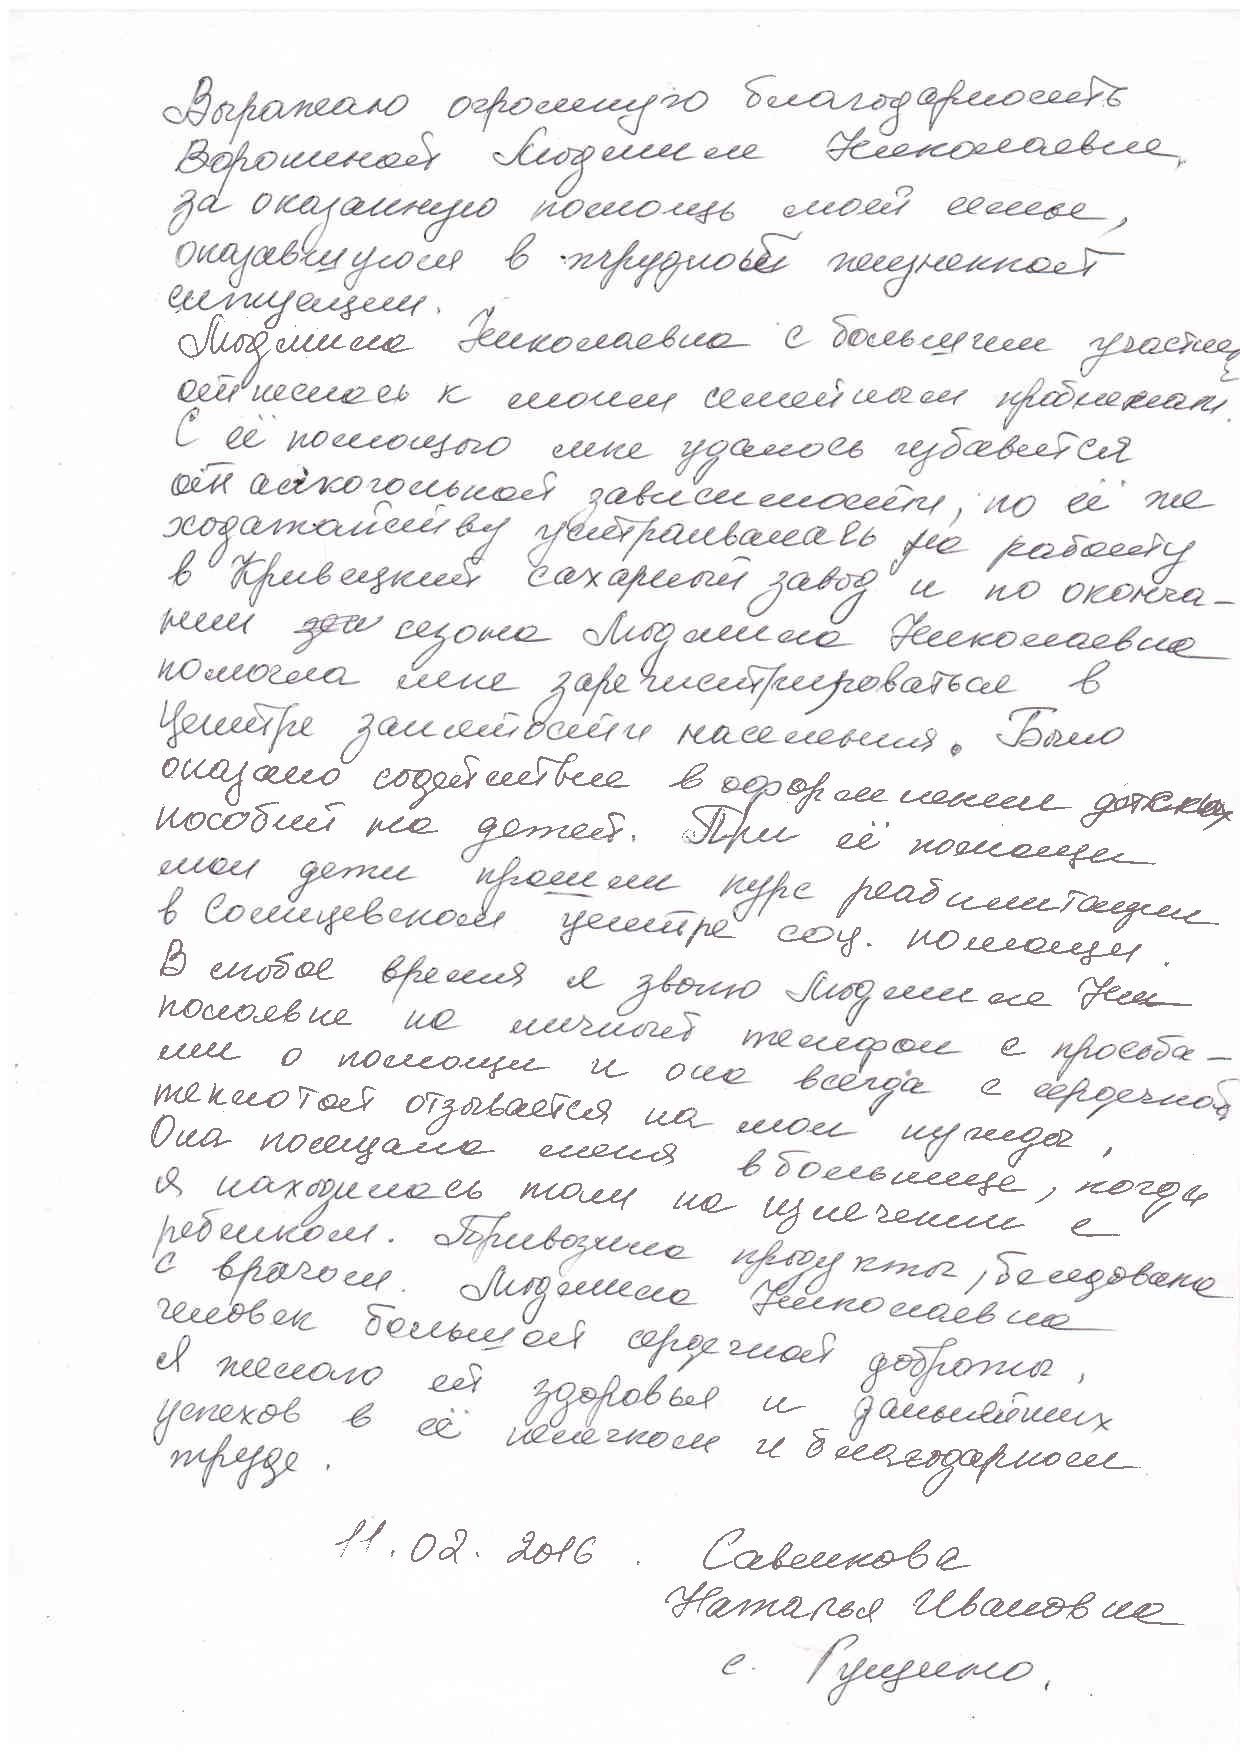 Выражаю огромную благодарность
Ворониной Людмиле Николаевне,
за оказанную помощь моей семье,
оказавшуюся в трудной жизненной
ситуации.
Людмила Николаевна с большим участием
отнеслась к моим семейным проблемам.
С её помощью мне удалось избавится
от алкогольной зависимости, по её же
ходатайству устраивалась на работу
в Кривецкий сахарный завод и по оконча-
нии сезона Людмила Николаевна
помогла мне зарегистрироваться в
Центре занятости населения. Было
оказано содействие в оформлении детских
пособий на детей. При её помощи
мои дети прошли курс реабилитации
в Солнцевском центре соц. помощи.
В любое время я звоню Людмиле Ни
колаевне на личный телефон с просьба-
ми о помощи и она всегда с сердечной
теплотой отзывается на мои нужды,
Она посещала меня в больнице, когда
я находилась там на излечении с
ребёнком. Привозила продукты, беседовала
с врачом. Людмила Николаевна
человек большой сердечной доброты,
Я желаю ей здоровья и дальнейших
успехов в её нелегком и благодарном
труде.
11.02.2016. Савенкова
Наталья Ивановна
с.